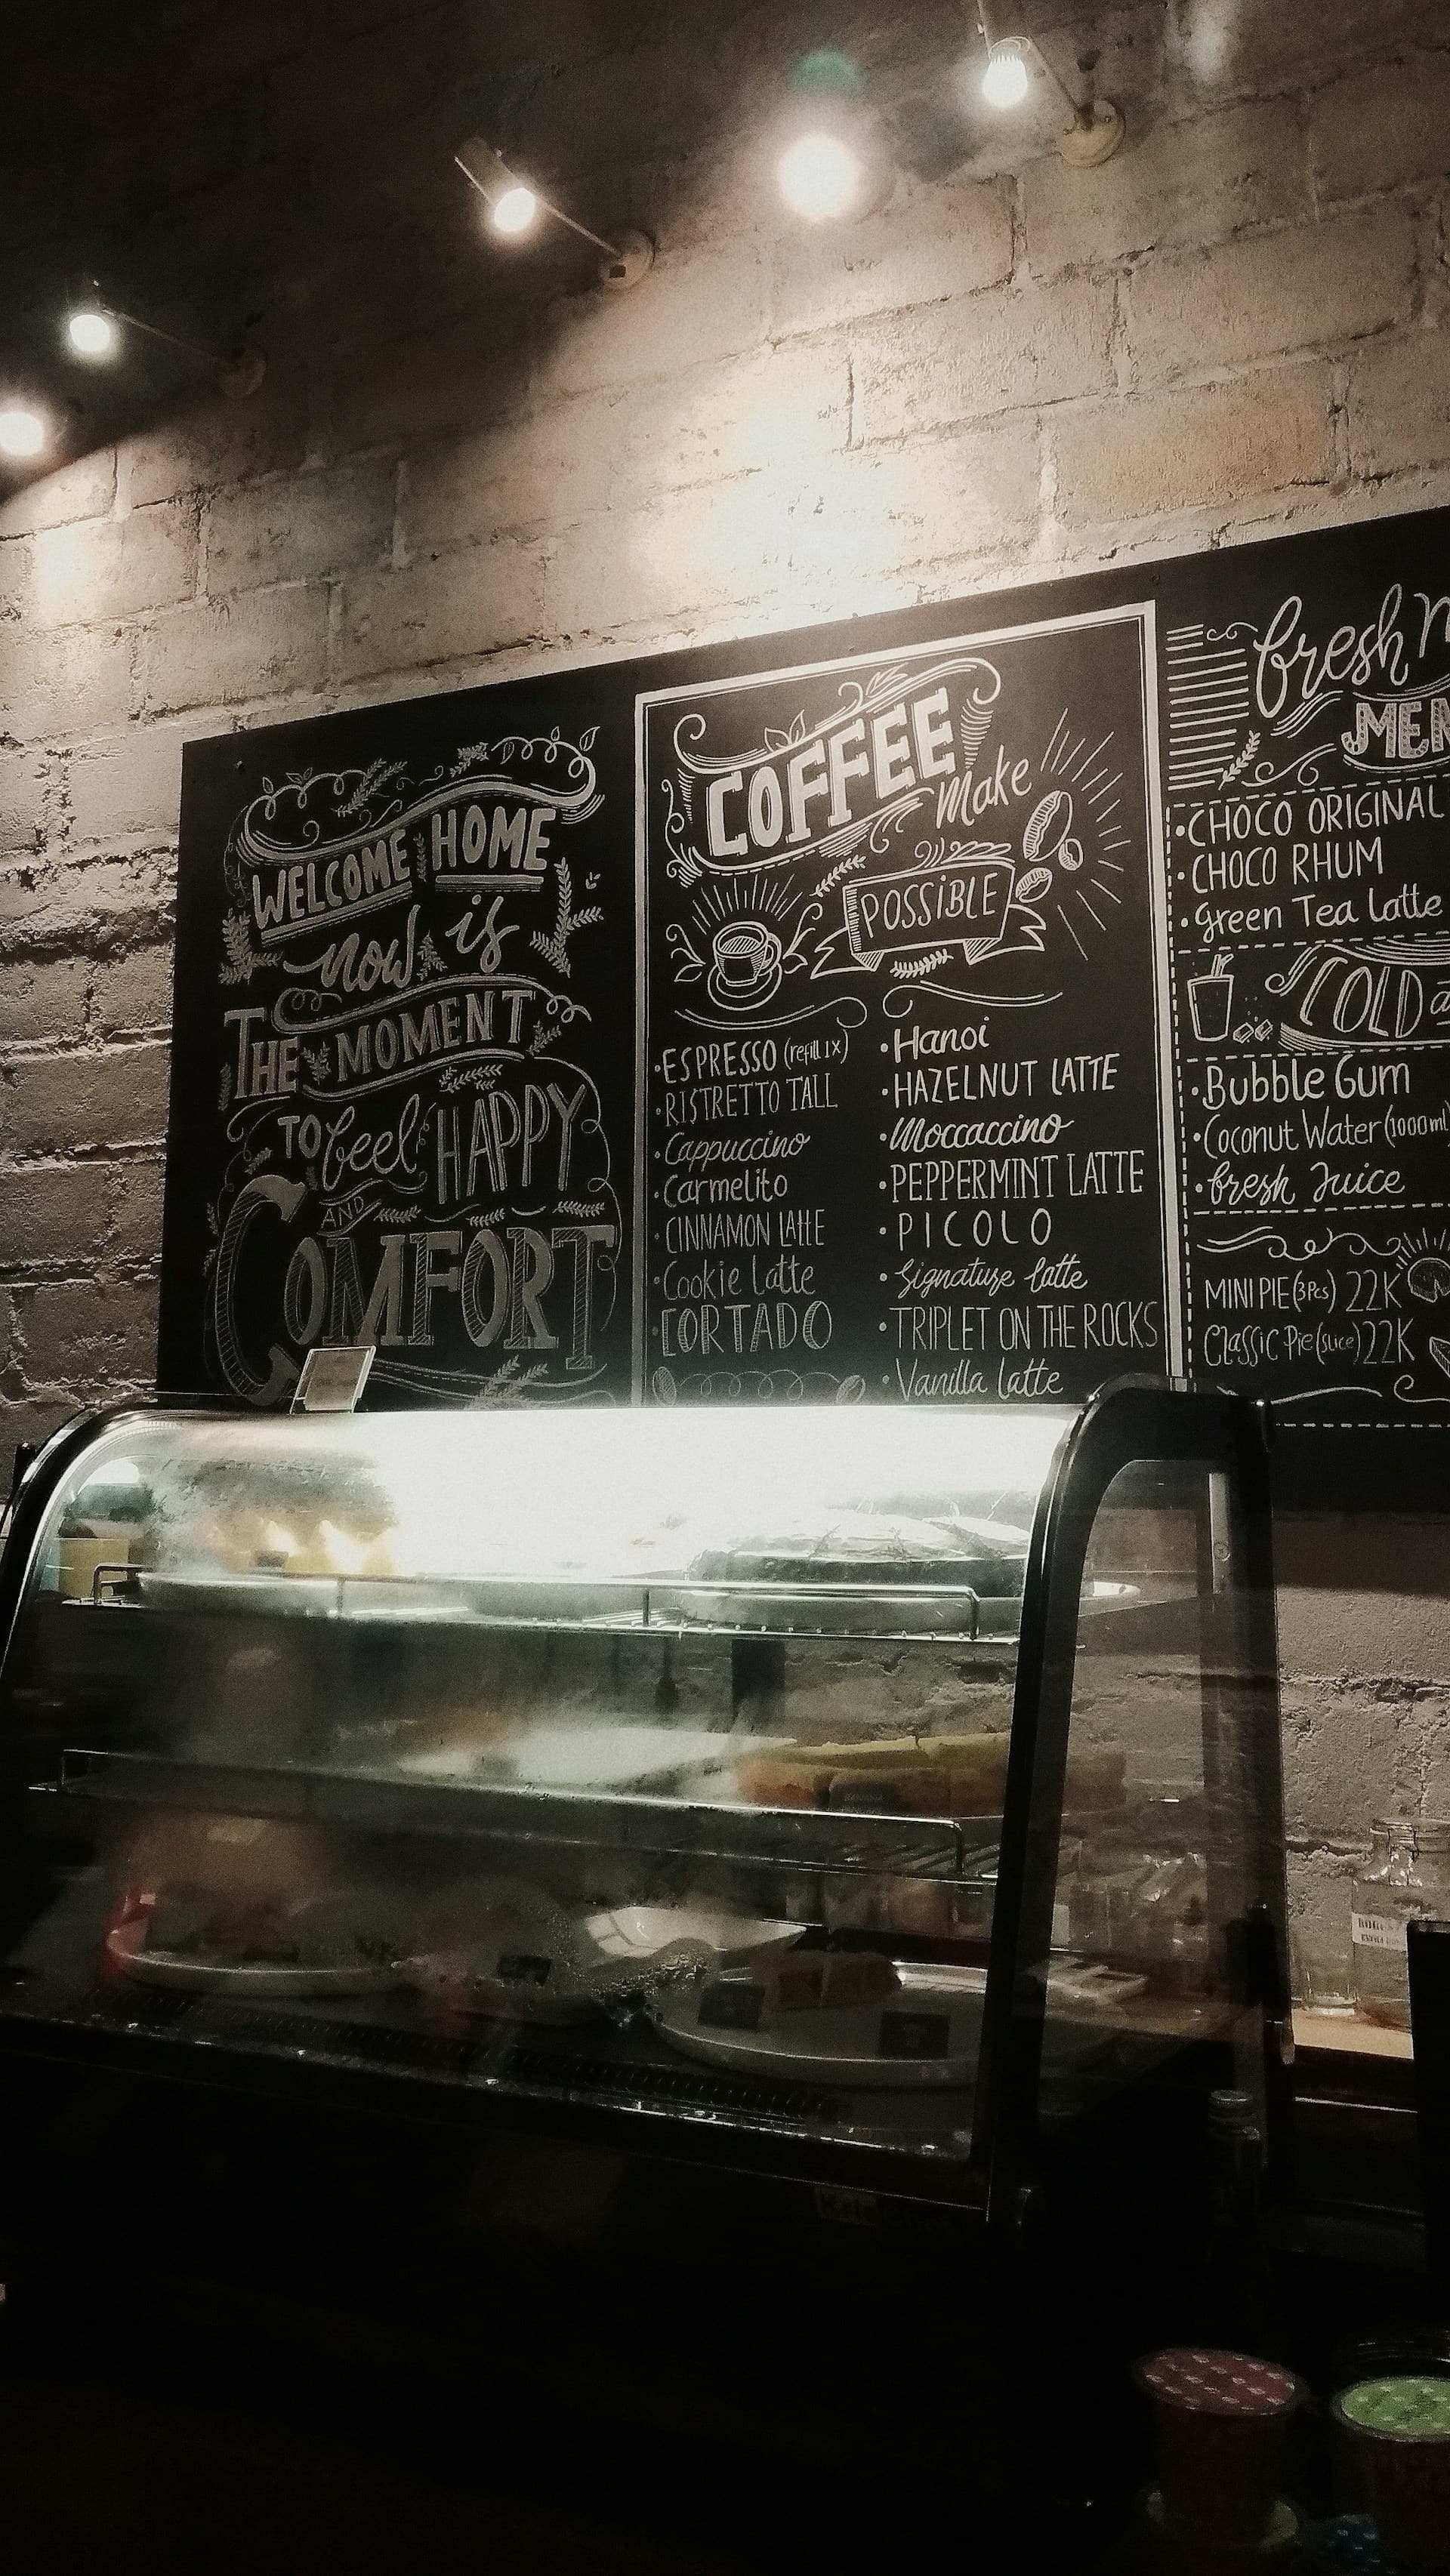 WELCOME HOME
now is
THE MOMENT
TO feel HAPPY
AND
COMFORT
COFFEE
Make
POSSiBLE
• ESPRESSO (refill 1x)
• RISTRETTO TALL
• Cappuccino
• Carmelito
• CINNAMON LATTE
• Cookie Latte
• CORTADO
• Hanoi
• HAZELNUT LATTE
• Moccaccino
• PEPPERMINT LATTE
• PICOLO
• Signature latte
• TRIPLET ON THE ROCKS
• Vanilla latte
fresh
• CHOCO ORIGINAL
• CHOCO RHUM
• Green Tea Latte
COLD
• Bubble Gum
• Coconut Water (1000ml
• fresh Juice
MINI PIE (3Pcs) 22K
Classic Pie (slice) 22K